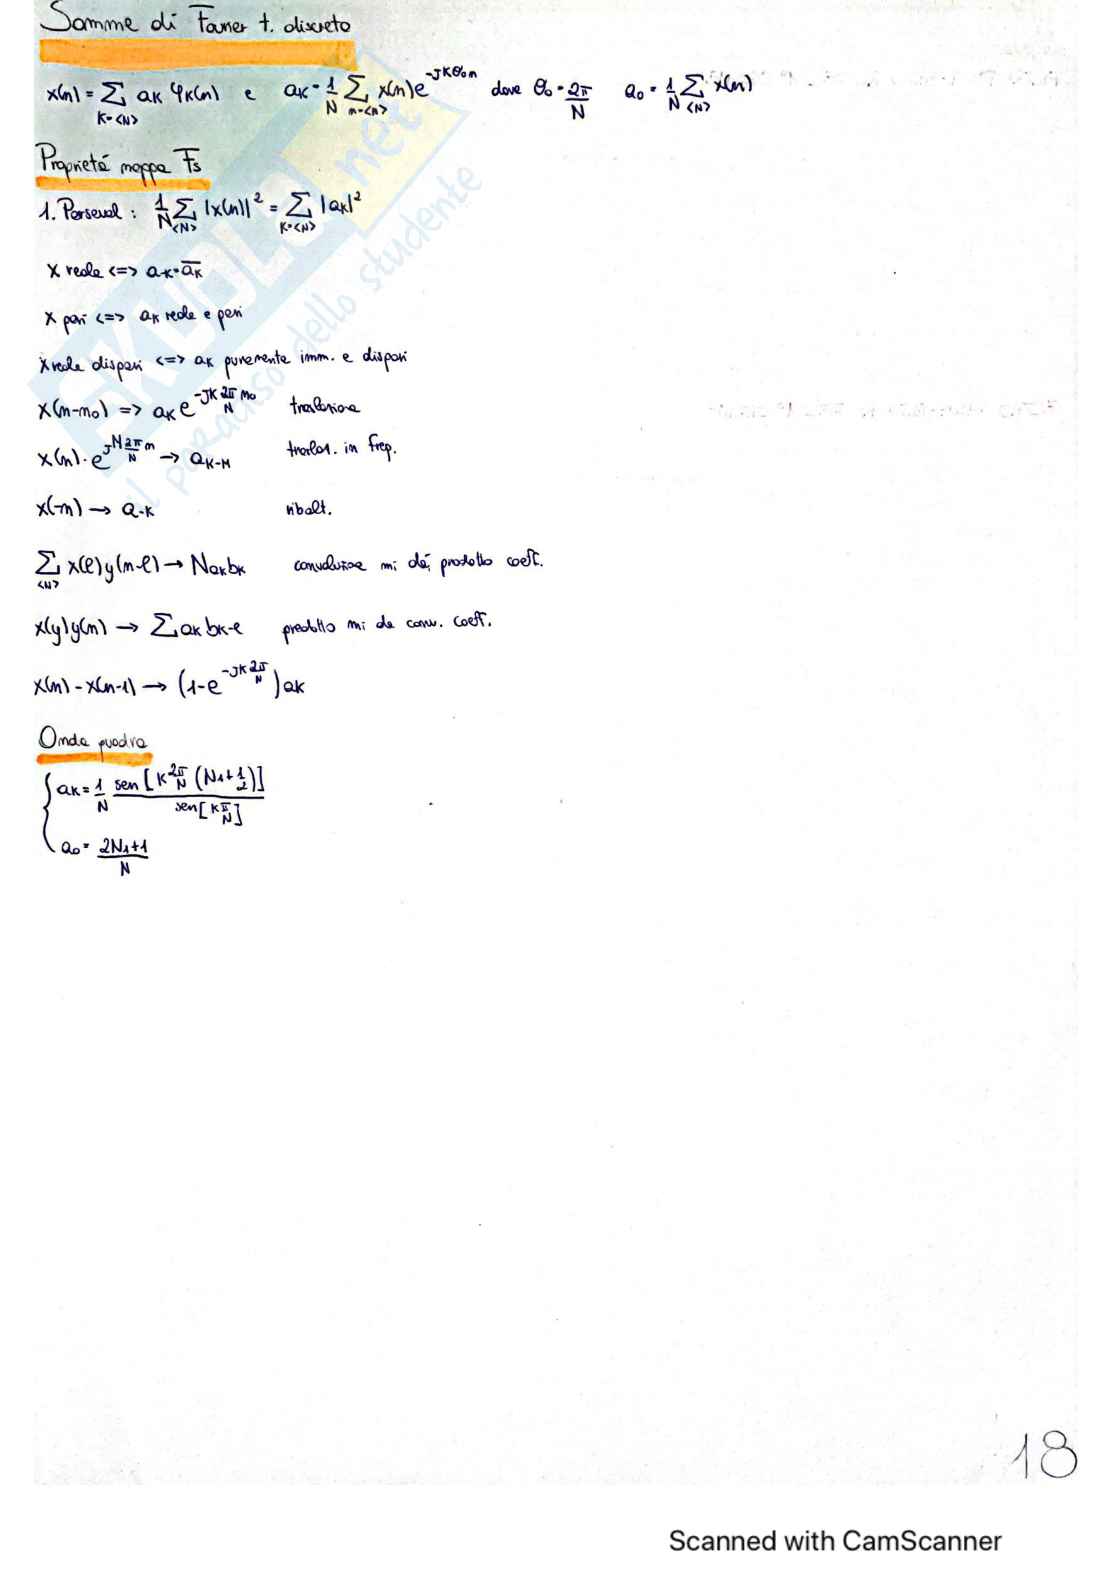 Somme di Fourier t. discreto
x(n) = ∑ aK φK(n) e aK = 1/N ∑ x(n)e^-JKθ₀n dove θ₀ = 2π/N a₀ = 1/N ∑ x(n)
K=<N> n=<n> <N>
Proprietá mappa Fs
1. Parseval : 1/N ∑ |x(n)|² = ∑ |aK|²
<N> K=<N>
x reale <=> a-K = \overline{aK}
x pari <=> aK reale e pari
x reale dispari <=> aK puramente imm. e dispari
x(n-n₀) => aK e^-JK 2π/N n₀ traslazione
x(n) · e^JM 2π/N n → aK-M traslaz. in freq.
x(-n) → a-K ribalt.
∑ x(l)y(n-l) → NaKbK convoluzione mi dá prodotto coeff.
<N>
x(y)y(n) → ∑ aK bK-l prodotto mi da conv. coeff.
x(n) - x(n-1) → (1-e^-JK 2π/N) aK
Onda quadra
{ aK = 1/N sen[K 2π/N (N₁+1/2)] / sen[K π/N]
a₀ = 2N₁+1 / N
18
Scanned with CamScanner
SKUOLA.net
il paradiso dello studente